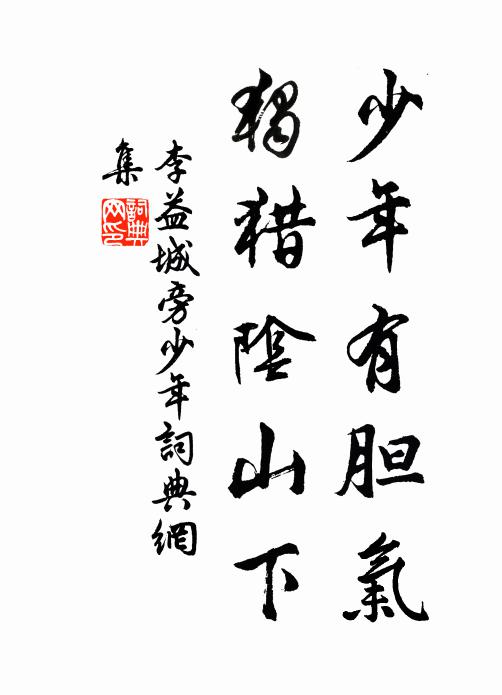 少年有胆氣
獨猎陰山下
李益城旁少年詞典網
集
詞典网印